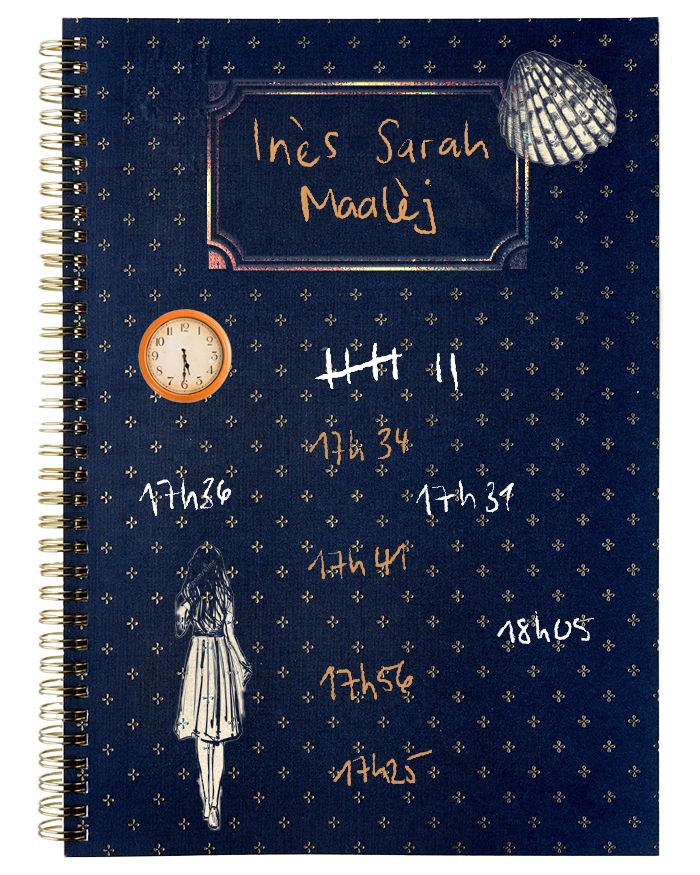 Inès Sarah
Maalèj
17h 34
17h36
17h 31
17h 41
18h05
17h56
17h25